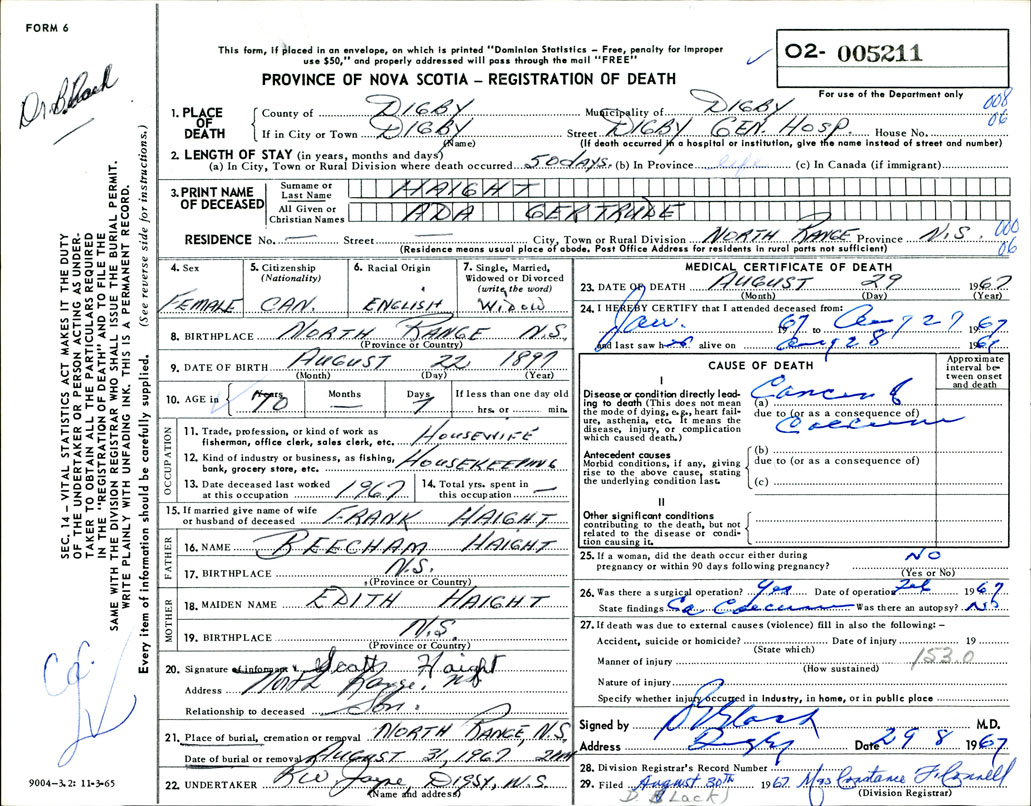 FORM 6
This form, if placed in an envelope, on which is printed "Dominion Statistics – Free, penalty for improper
use $50," and properly addressed will pass through the mail "FREE"
PROVINCE OF NOVA SCOTIA – REGISTRATION OF DEATH
02- 005211
For use of the Department only
008
06
Dr. B. Black
1. PLACE OF DEATH { County of DIGBY Municipality of DIGBY
If in City or Town DIGBY Street DIGBY GEN. HOSP. House No.
(Name) (If death occurred in a hospital or institution, give the name instead of street and number)
2. LENGTH OF STAY (in years, months and days)
(a) In City, Town or Rural Division where death occurred 50 days. (b) In Province life (c) In Canada (if immigrant)
3. PRINT NAME OF DECEASED
Surname or Last Name HAIGHT
All Given or Christian Names ADA GERTRUDE
RESIDENCE No. — Street — City, Town or Rural Division NORTH RANGE Province N.S.
000
06
(Residence means usual place of abode. Post Office Address for residents in rural parts not sufficient)
4. Sex
FEMALE
5. Citizenship
(Nationality)
CAN.
6. Racial Origin
ENGLISH
7. Single, Married,
Widowed or Divorced
(write the word)
WIDOW
8. BIRTHPLACE NORTH RANGE N.S.
(Province or Country)
9. DATE OF BIRTH AUGUST 22 1897
(Month) (Day) (Year)
10. AGE in { Years 70 Months — Days 7 If less than one day old
hrs. or min.
OCCUPATION
11. Trade, profession, or kind of work as
fisherman, office clerk, sales clerk, etc. HOUSEWIFE
12. Kind of industry or business, as fishing,
bank, grocery store, etc. HOUSEKEEPING
13. Date deceased last worked
at this occupation 1967
14. Total yrs. spent in
this occupation —
15. If married give name of wife
or husband of deceased FRANK HAIGHT
FATHER
16. NAME BEECHAM HAIGHT
17. BIRTHPLACE N.S.
(Province or Country)
MOTHER
18. MAIDEN NAME EDITH HAIGHT
19. BIRTHPLACE N.S.
(Province or Country)
20. Signature of informant Haight
Address North Range, NS
Relationship to deceased Son.
21. Place of burial, cremation or removal NORTH RANGE, N.S.
Date of burial or removal AUGUST 31, 1967 2PM
22. UNDERTAKER R W Jayne, DIGBY, N.S.
(Name and address)
MEDICAL CERTIFICATE OF DEATH
23. DATE OF DEATH AUGUST 29 1967
(Month) (Day) (Year)
24. I HEREBY CERTIFY that I attended deceased from:
Jan. 1967 to Aug 29 1967
and last saw her alive on Aug 28 196
CAUSE OF DEATH
Approximate
interval be-
tween onset
and death
I
Disease or condition directly lead-
ing to death (This does not mean
the mode of dying, e.g., heart fail-
ure, asthenia, etc. It means the
disease, injury, or complication
which caused death.)
(a) Cancer of
due to (or as a consequence of)
Coecum
Antecedent causes
Morbid conditions, if any, giving
rise to the above cause, stating
the underlying condition last.
(b)
due to (or as a consequence of)
(c)
II
Other significant conditions
contributing to the death, but not
related to the disease or condi-
tion causing it.
25. If a woman, did the death occur either during
pregnancy or within 90 days following pregnancy? NO
(Yes or No)
26. Was there a surgical operation? Yes Date of operation Feb 1967
State findings Ca Coecum Was there an autopsy? No
27. If death was due to external causes (violence) fill in also the following: –
Accident, suicide or homicide? Date of injury 19
(State which)
Manner of injury 153.0
(How sustained)
Nature of injury
Specify whether injury occurred in industry, in home, or in public place
Signed by D Black M.D.
Address Digby Date 29 8 1967
28. Division Registrar's Record Number
29. Filed August 30th 1967 Mrs Constance F. Connell
(Division Registrar)
D. BLACK)
SEC. 14 – VITAL STATISTICS ACT MAKES IT THE DUTY
OF THE UNDERTAKER OR PERSON ACTING AS UNDER-
TAKER TO OBTAIN ALL THE PARTICULARS REQUIRED
IN THE "REGISTRATION OF DEATH" AND TO FILE THE
SAME WITH THE DIVISION REGISTRAR WHO SHALL ISSUE THE BURIAL PERMIT.
WRITE PLAINLY WITH UNFADING INK. THIS IS A PERMANENT RECORD.
Every item of information should be carefully supplied. (See reverse side for instructions.)
9004–3.2: 11-3-65